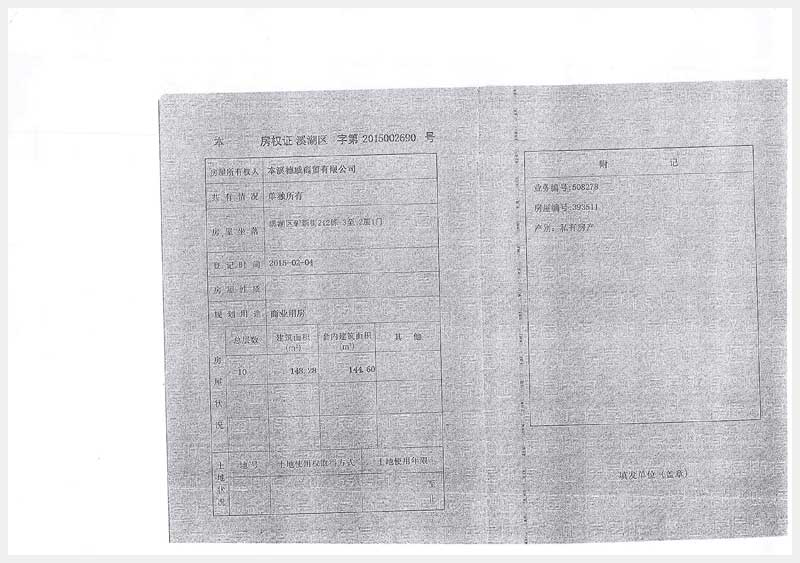 本 房权证 溪湖区 字第 2015002690 号
房屋所有权人 本溪德威商贸有限公司
共有情况 单独所有
房屋坐落
登记时间 2015-02-04
房屋性质
规划用途 商业用房
房屋状况
总层数 建筑面积(m²) 套内建筑面积(m²) 其他
10 148.28 144.60
土地状况
地号 土地使用权取得方式 土地使用年限
至
止
附 记
业务编号:508278
房屋编号:393511
产别: 私有房产
填发单位(盖章)